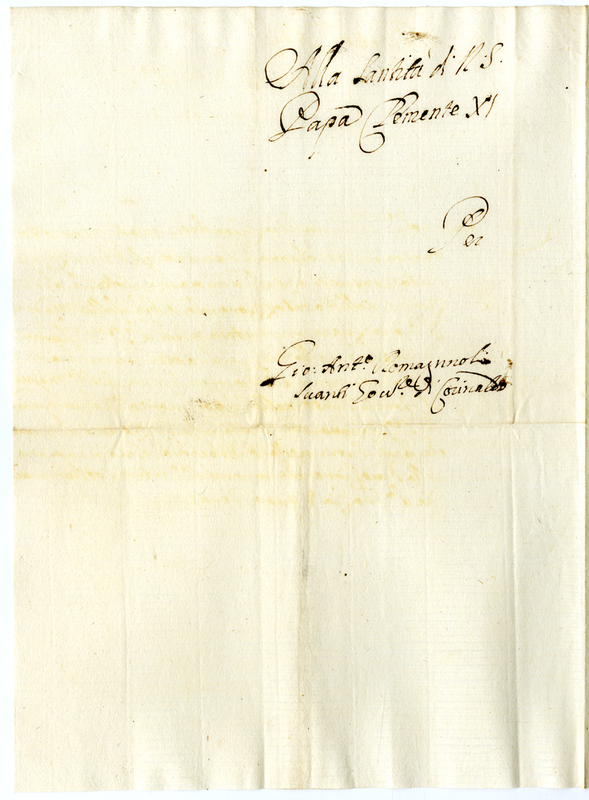 Alla Santità di N. S.
Papa Clemente XI
Per
Gio: Ant.o Romagnoli
Di Corinaldo